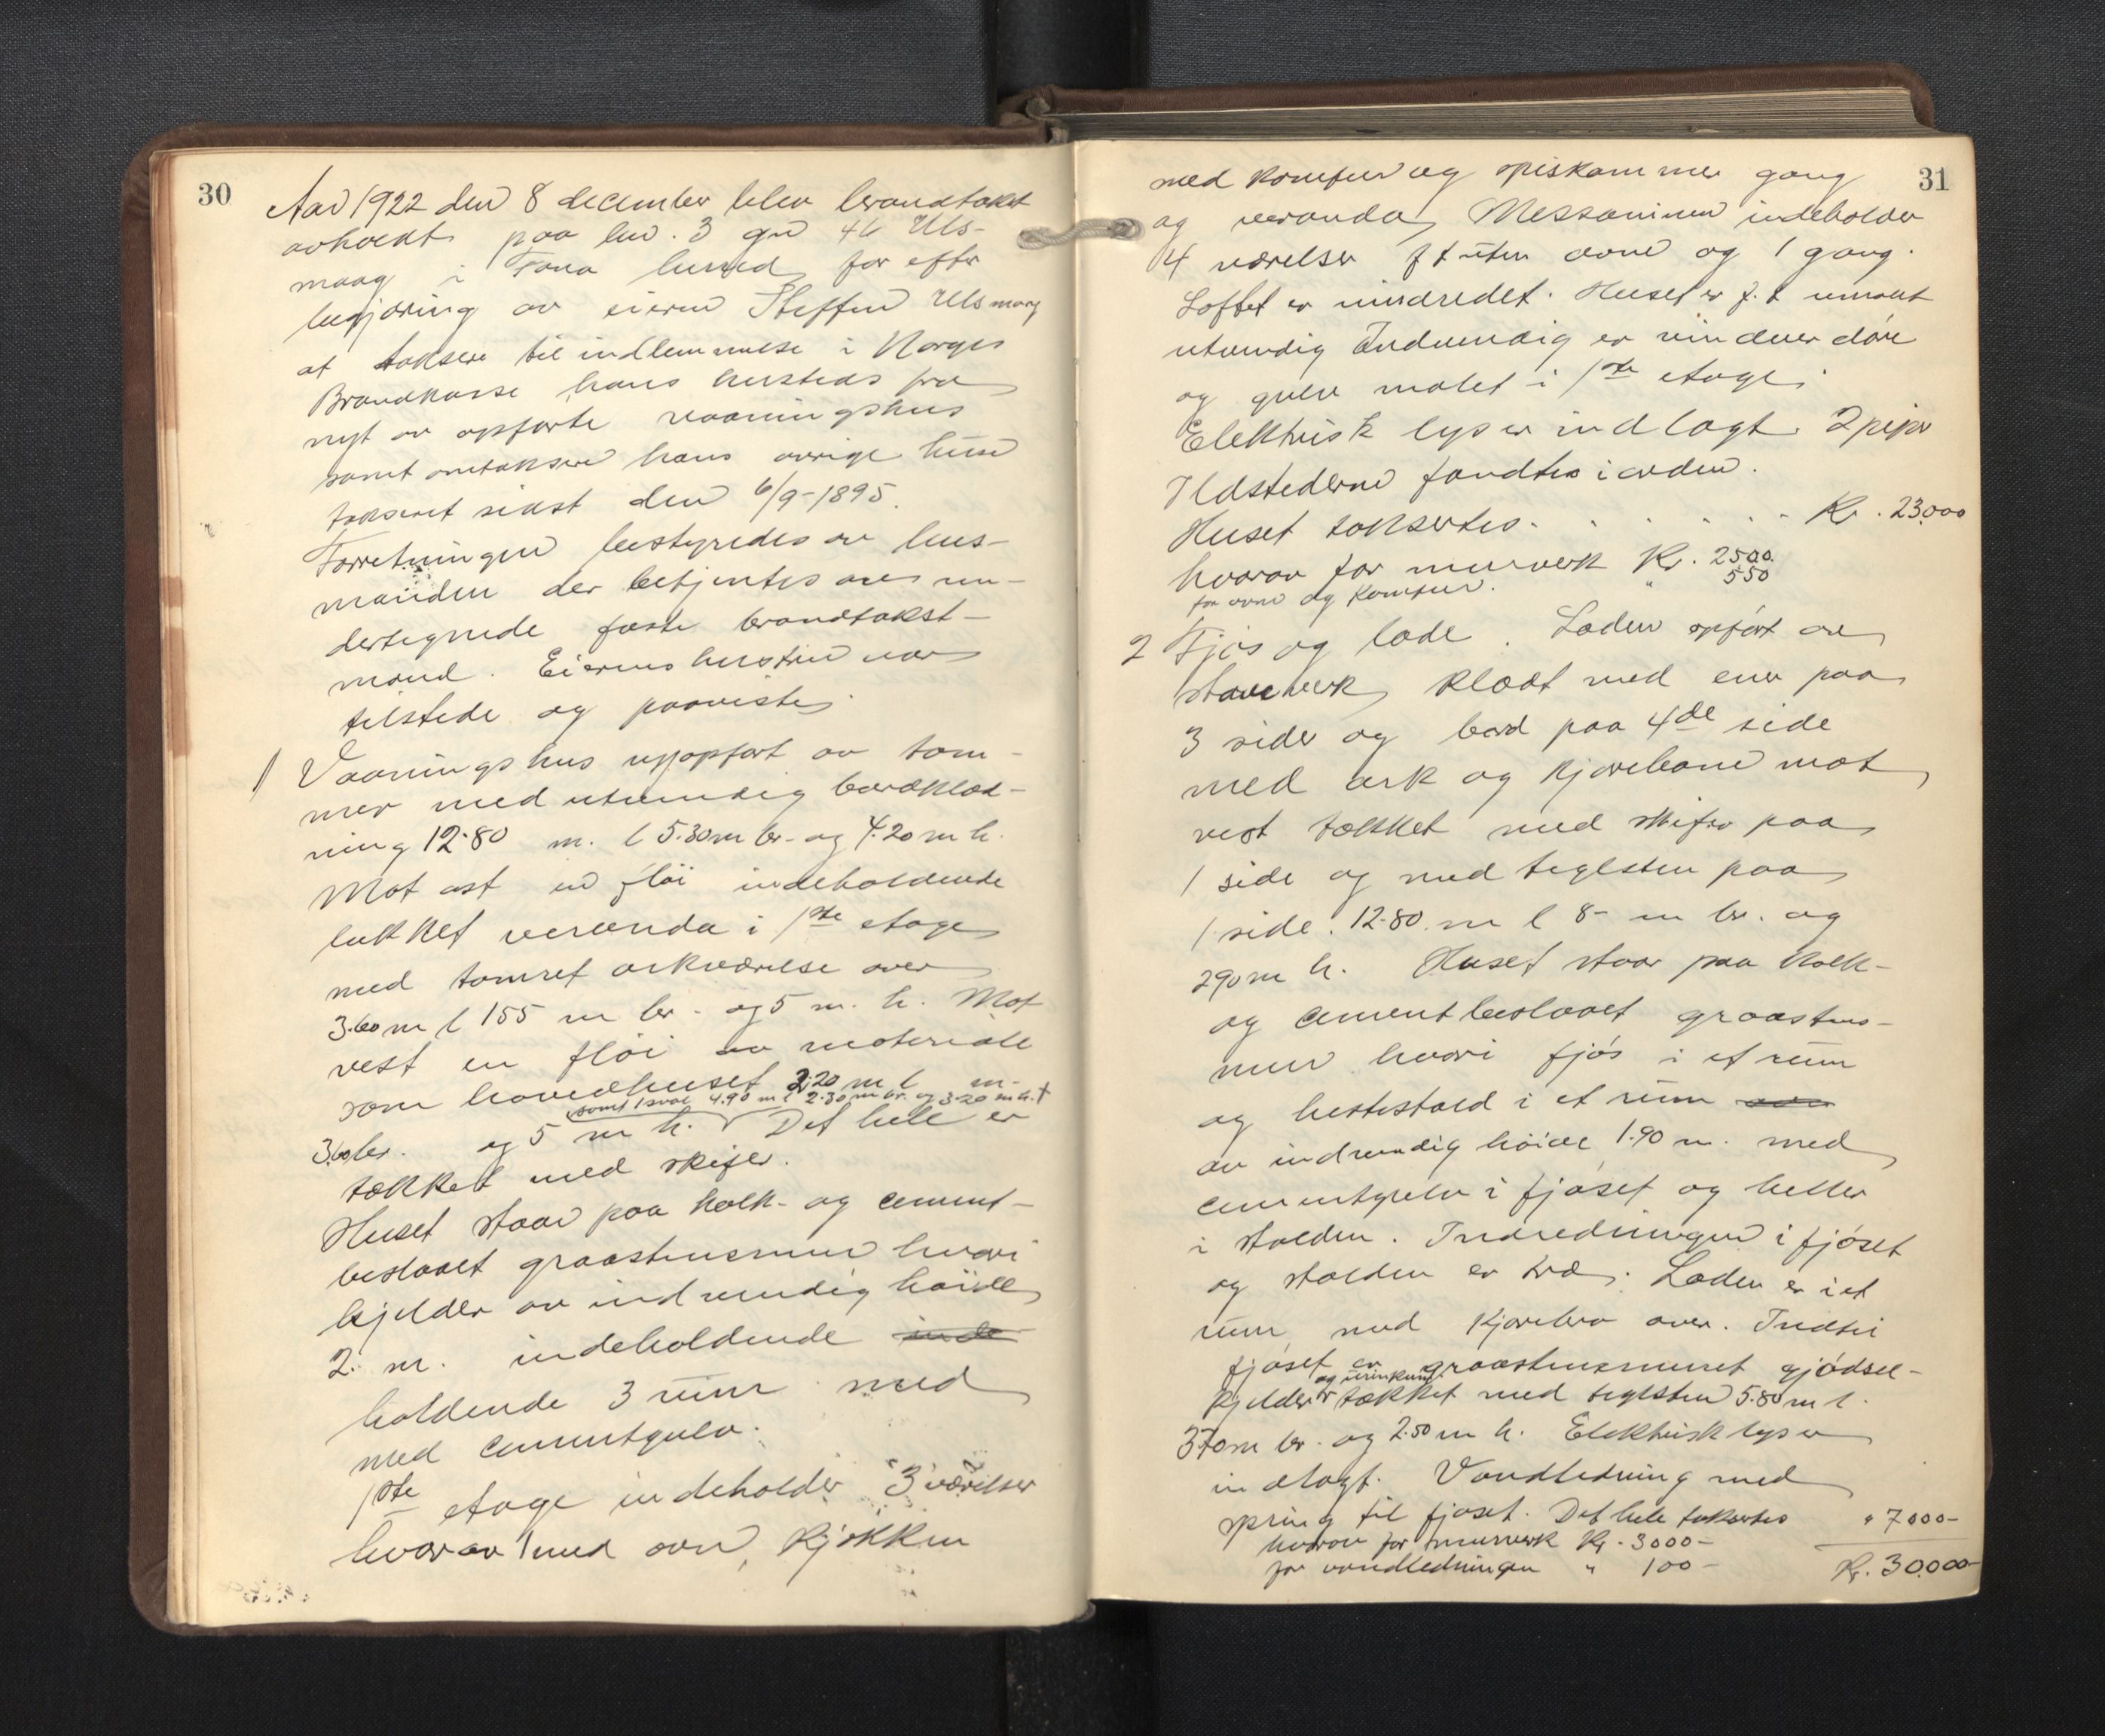 30
Aar 1922 den 8 december blev brandtakst
avholdt paa bno. 3 gno 46 Uls-
maag i Fana herred for efter
begjæring av eieren Steffen Ulsmaag
at taksere til indlemmelse i Norges
Brandkasse hans husteds fra
nyt av opførte vaaningshus
samt omtaksere hans øvrige huse
takseret sidst den 6/9-1895.
Forretningen bestyredes av lens-
manden der betjentes av un-
dertegnede faste brandtakst-
mænd. Eierens hustru var
tilstede og paaviste
1 Vaaningshus nyopført av tøm-
mer med utvendig bordklæd-
ning 12.80 m. l 5.30 m br. og 4.20 m h.
Mot øst en fløi indeholdende
lukket veranda i 1ste etage
med tømret arkværelse over
3.60 m l 155 m br. og 5 m. h. Mot
vest en fløi av materiale
som hovedhuset 2.20 m l m-
samt 1 sval 4.90 m l 2.30 m br. og 3.20 m h. +
3.60 br. og 5 m h. Det hele er
tækket med skifer.
Huset staar paa kalk- og cement-
beslaaet graastensmur hvori
kjelder av indvendig høide
2. m. indeholdende inde
holdende 3 rum med
med cementgulv.
1ste etage indeholder 3 værelser
hvorav 1 med ovn, kjøkken
31
med komfur og spiskammer gang
og veranda, Messaninen indeholder
4 værelser f t uten ovne og 1 gang.
Loftet er uindredet. Huset er f. t umalt
utvendig Indvendig er vinduer døre
og gulv malet i 1ste etage.
Elektrisk lys er indlagt. 2 piper
Ildstederne fandtes i orden.
Huset taksertes. . . . . . Kr. 23000
hvorav for murverk Kr. 2500.
for ovne og komfur. " 550
2 Fjøs og lade. Laden opført av
stavverk klædt med ener paa
3 sider og bord paa 4de side
med ark og kjørebane mot
vest tækket med skifer paa
1 side og med teglsten paa
1 side. 12.80 m l 8- m br. og
290 m h. Huset staar paa kalk-
og cementbeslaaet graastens-
mur hvori fjøs i et rum
og hestestald i et rum
av indvendig høide 1.90 m. med
cementgulv i fjøset og heller
i stalden. Indredningen i fjøset
og stalden er træ. Laden er i et
rum med kjørebro over. Indtil
fjøset er graastensmuret gjødsel-
og urinkum
kjelder tækket med teglsten 5.80 m l.
370 m br. og 2.50 m h. Elektrisk lys er
indlagt. Vandledning med
spring til fjøset. Det hele taksertes " 7000-
hvorav for murverk Kr. 3000-
for vandledningen " 100- Kr. 30.000-